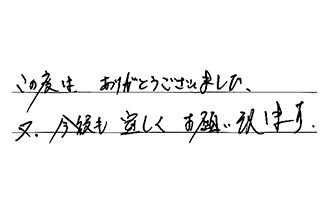 この度は ありがとうございました、
又、今後も宜しくお願い致します.